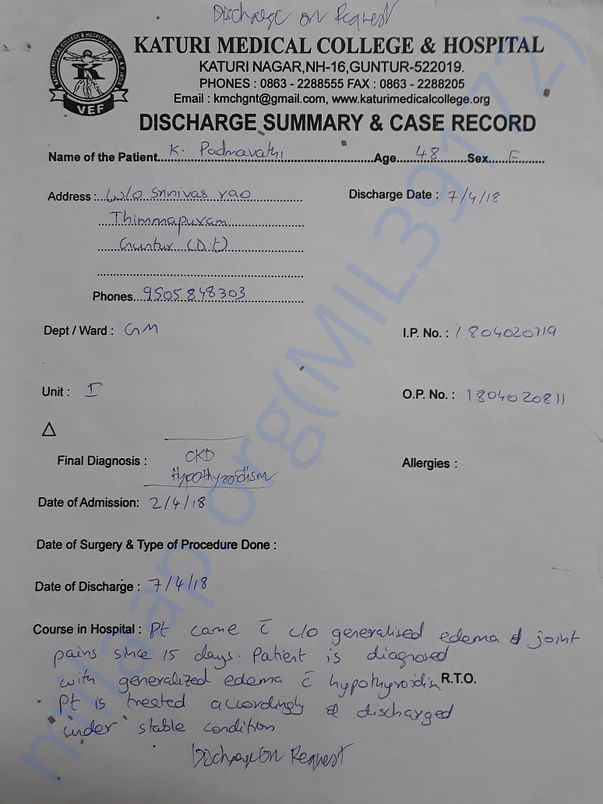 Discharge on Request
KATURI MEDICAL COLLEGE & HOSPITAL
KATURI NAGAR,NH-16,GUNTUR-522019.
PHONES : 0863 - 2288555 FAX : 0863 - 2288205
Email : kmchgnt@gmail.com, www.katurimedicalcollege.org
VEF
DISCHARGE SUMMARY & CASE RECORD
Name of the Patient K. Padmavathi Age 48 Sex F
Address : W/o Srinivas rao Discharge Date : 7/4/18
Thimmapuram
Guntur (D.t)
Phones 9505848303
Dept / Ward : GM I.P. No. : 1804020719
Unit : I O.P. No. : 1804020811
Δ
Final Diagnosis : CKD Allergies :
Hypothyroidism
Date of Admission: 2/4/18
Date of Surgery & Type of Procedure Done :
Date of Discharge : 7/4/18
Course in Hospital : Pt came c̄ c/o generalised edema & joint
pains since 15 days. Patient is diagnosed
with generalized edema c̄ hypothyroidism R.T.O.
Pt is treated accordingly & discharged
under stable condition
Discharge On Request
milaap.org(MIL39172)